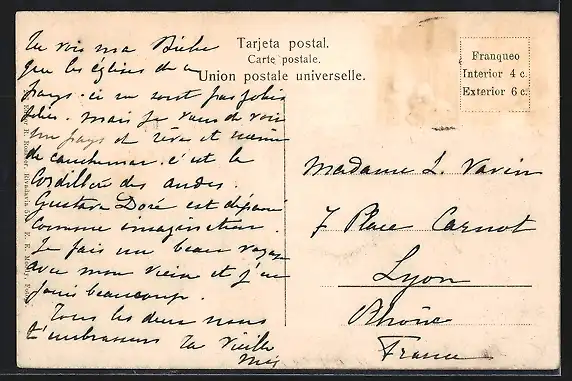 Tu vois ma Biche
que les églises de ce
pays-ci ne sont pas jolies
jolies. mais je viens de voir
un pays de rêve et même
de cauchemar. c'est la
Cordillère des andes.
Gustave Doré est dépassé
comme imagination.
Je fais un beau voyage
avec mon vieux et j'en
jouis beaucoup.
Tous les deux nous
t'embrassons ta vieille
Tarjeta postal.
Carte postale.
Union postale universelle.
Franqueo
Interior 4 c.
Exterior 6 c.
Madame L. Varin
7 Place Carnot
Lyon
Rhône
France